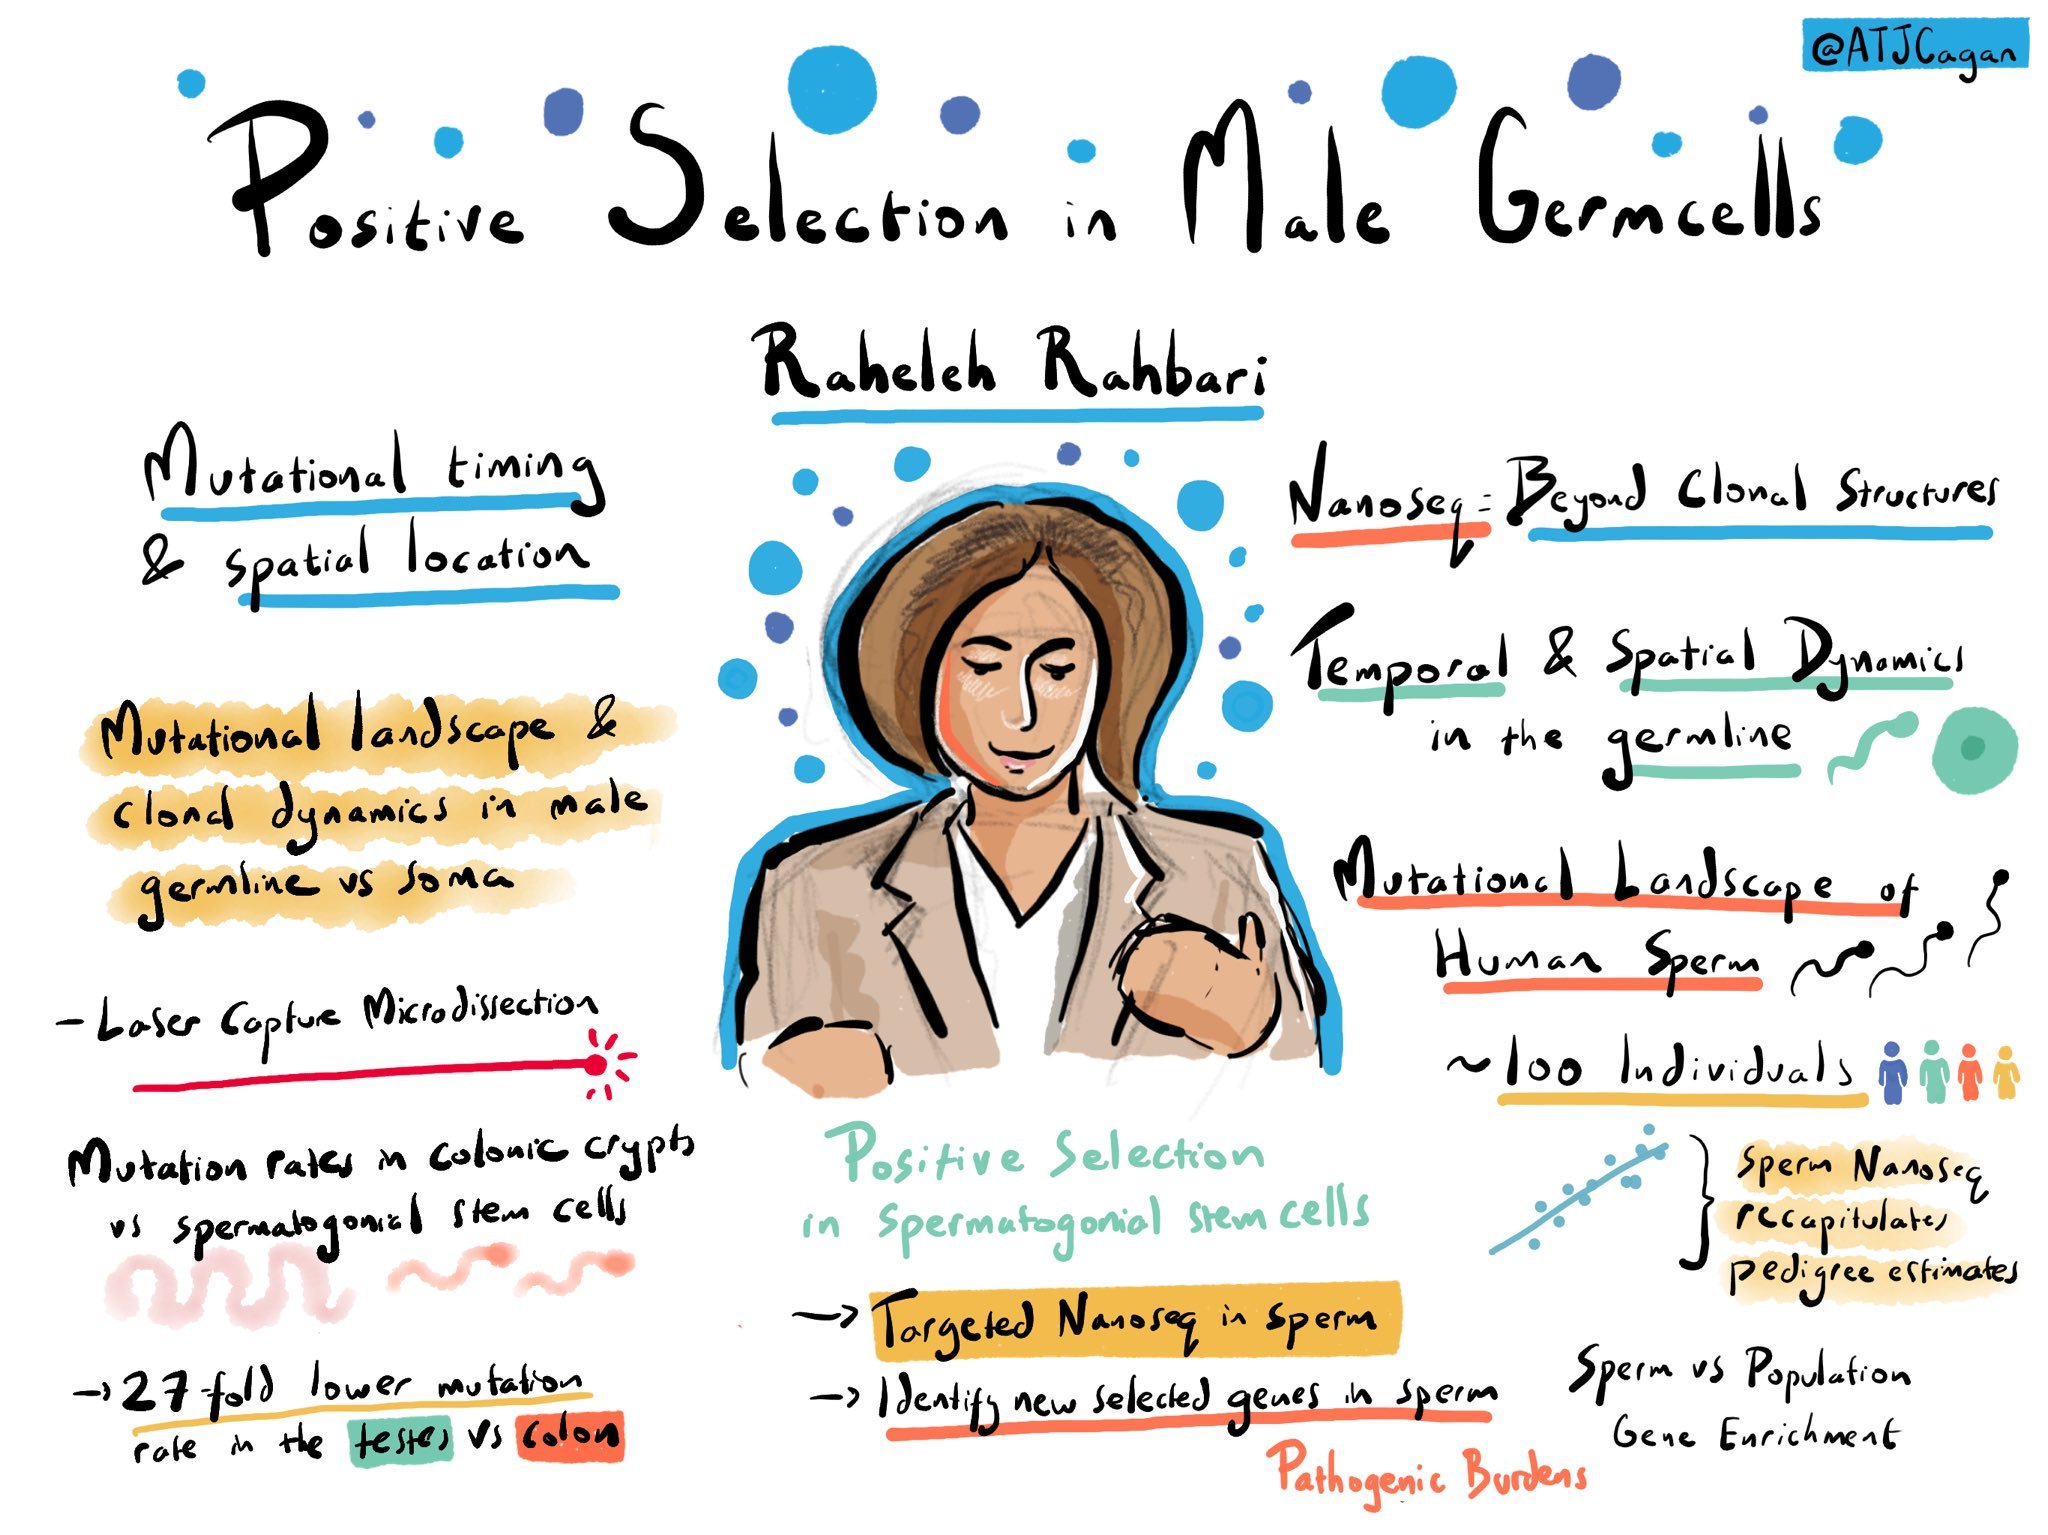 @ATJCagan
Positive Selection in Male Germcells
Raheleh Rahbari
Mutational timing
& spatial location
Mutational landscape &
clonal dynamics in male
germline vs soma
- Laser Capture Microdissection
Mutation rates in colonic crypts
vs spermatogonial stem cells
→ 27-fold lower mutation
rate in the testes vs colon
Positive Selection
in spermatogonial stem cells
→ Targeted Nanoseq in sperm
→ Identify new selected genes in sperm
Pathogenic Burdens
Nanoseq = Beyond Clonal Structures
Temporal & Spatial Dynamics
in the germline
Mutational Landscape of
Human Sperm
~100 Individuals
Sperm Nanoseq
recapitulates
pedigree estimates
Sperm vs Population
Gene Enrichment